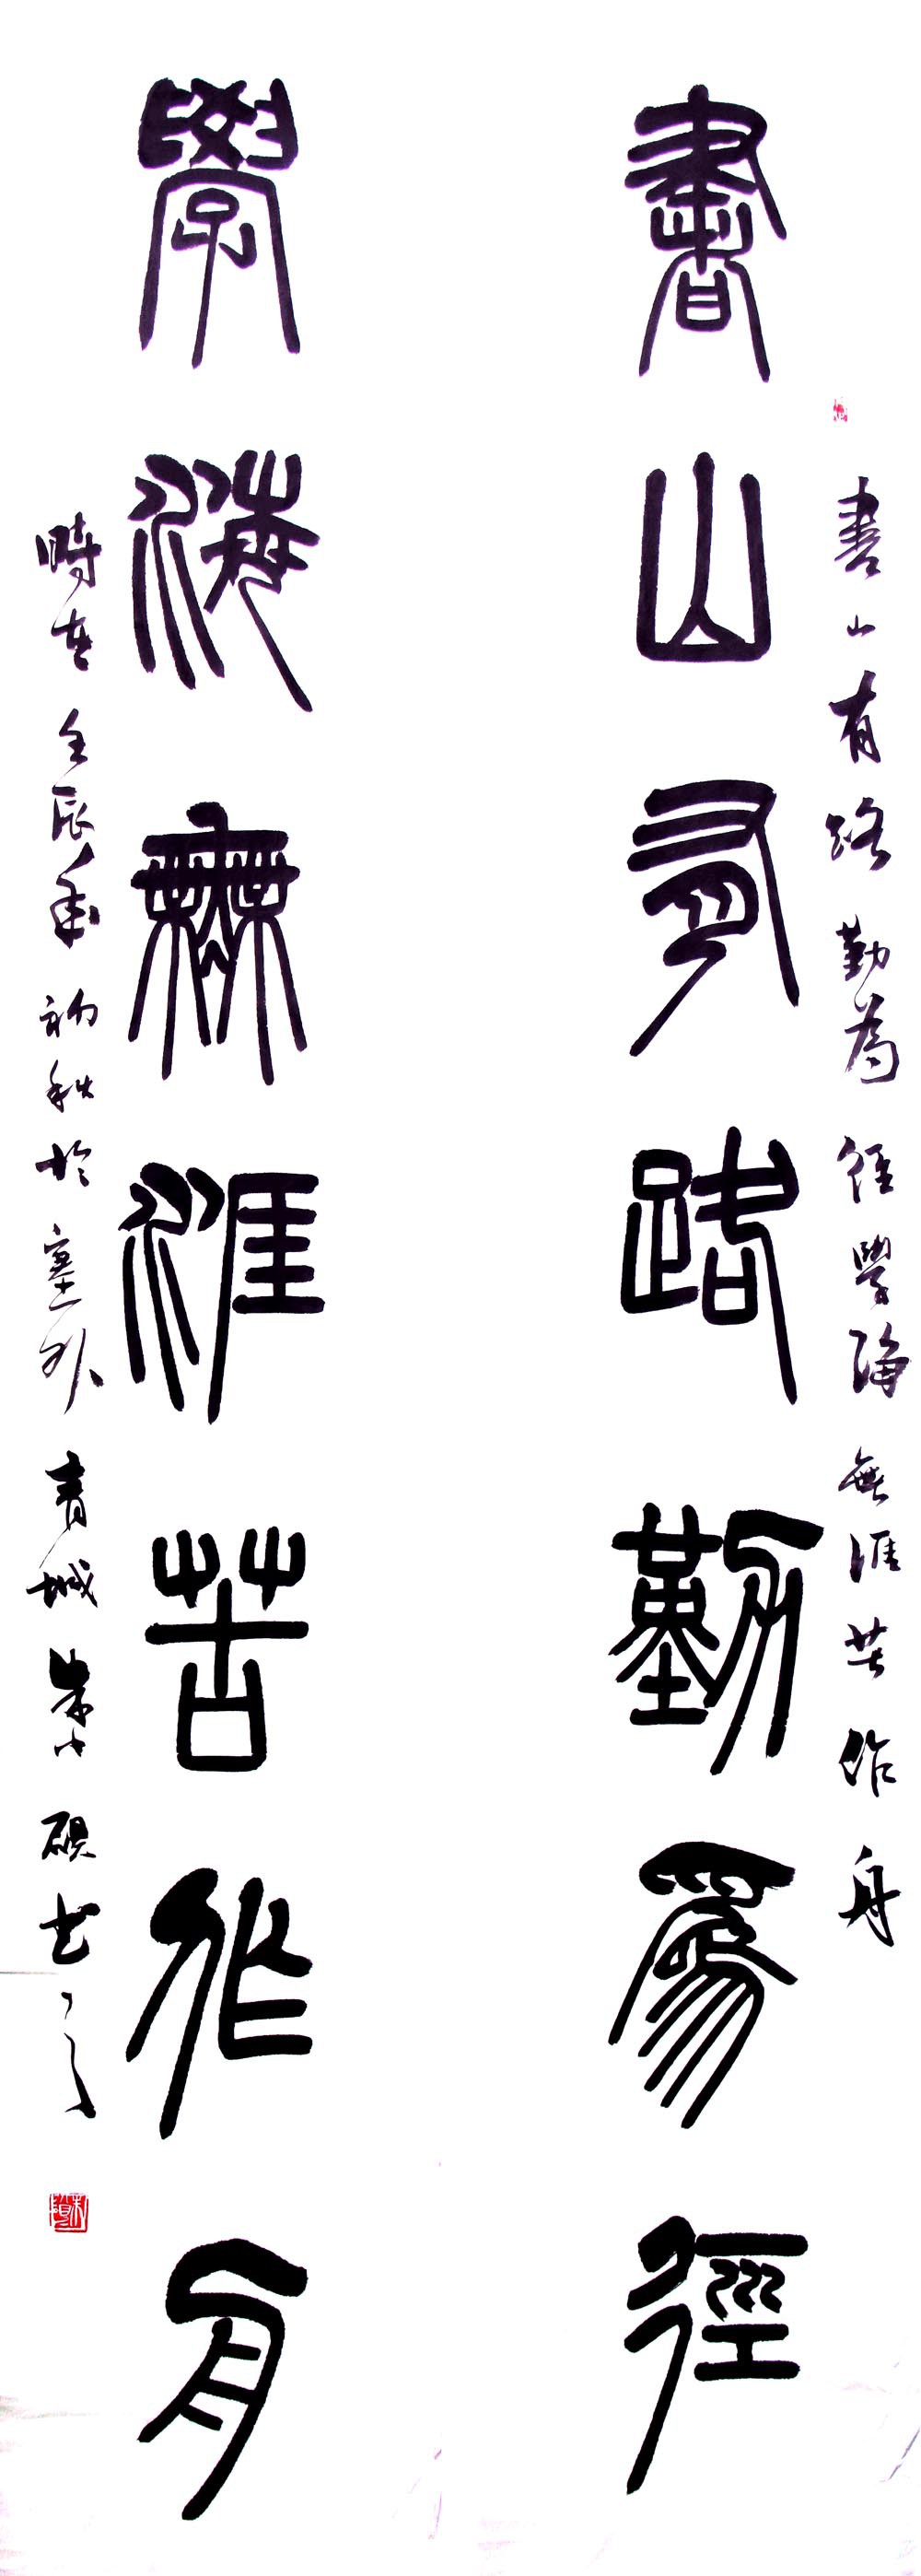 書山有路勤為徑學海無涯苦作舟
書山有路勤為徑
學海無涯苦作舟
時在壬辰年初秋於塞外青城朱小硯書